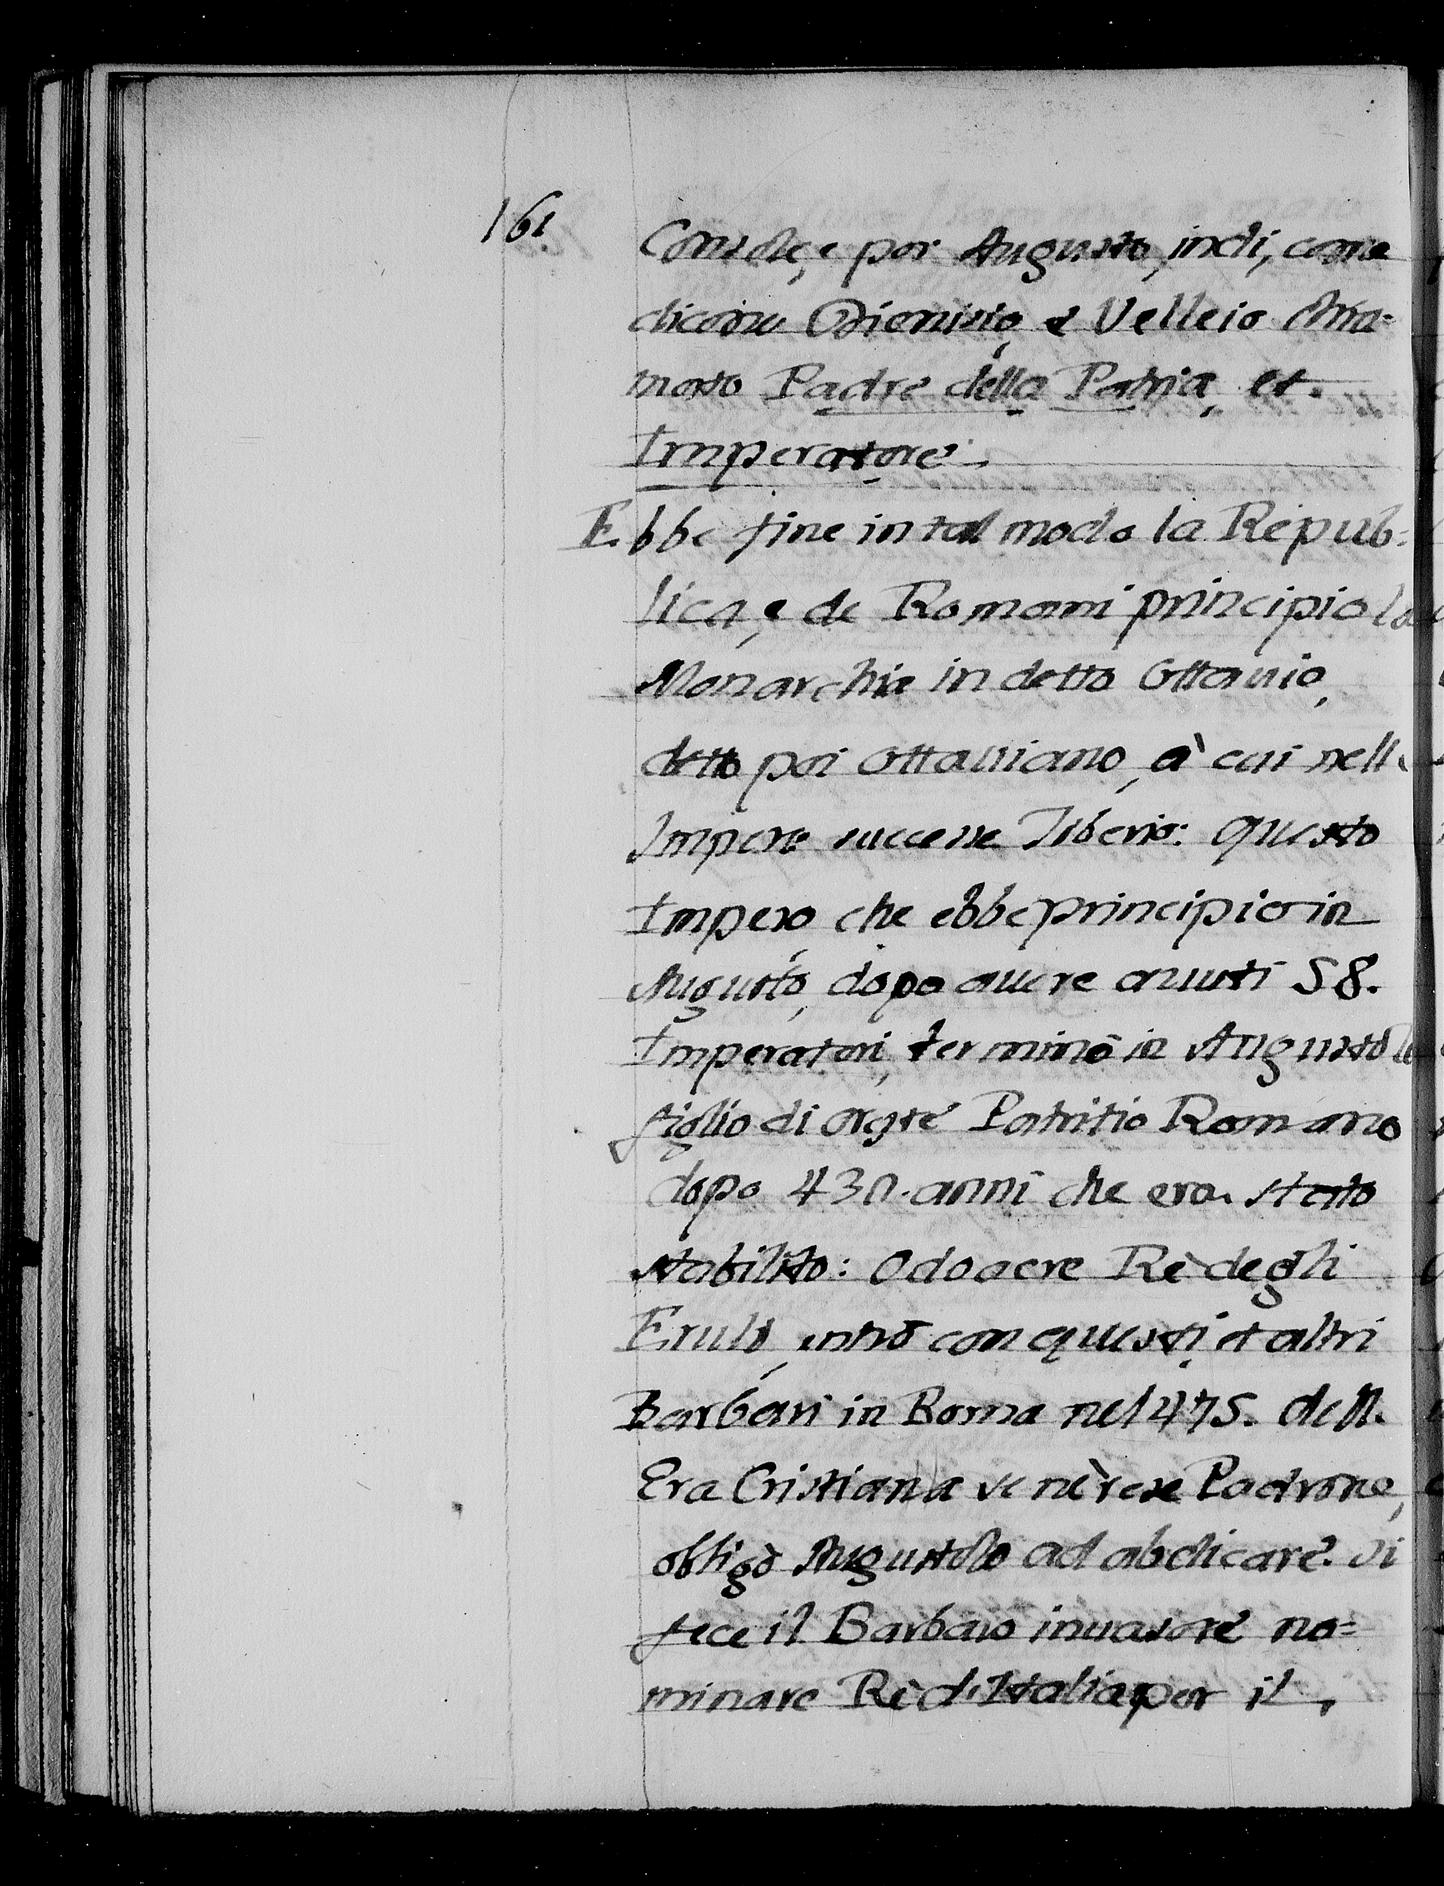 161
Console, e poi Augusto, indi, come
dicono Dionisio, e Velleio chia=
mato Padre della Patria, et.
Imperatore.
Ebbe fine in tal modo la Repub=
lica, e de Romani principio la
Monarchia in detto Ottauio,
detto poi Ottauiano, à cui nell
Impero successe Tiberio: questo
Impero che ebbe principio in
Augusto, dopo auere auuti 58.
Imperatori, terminò in Augustolo
figlio di Patritio Romano
dopo 430. anni che era stato
stabilito: Odoacre Rè degli
Eruli, entrò con questi, et altri
Barbari in Roma nel 475. dell.
Era Cristiana se nè rese Padrone,
obligò Augustolo ad abdicare. si
fece il Barbaro inuasore no=
minare Rè d'Italia per il